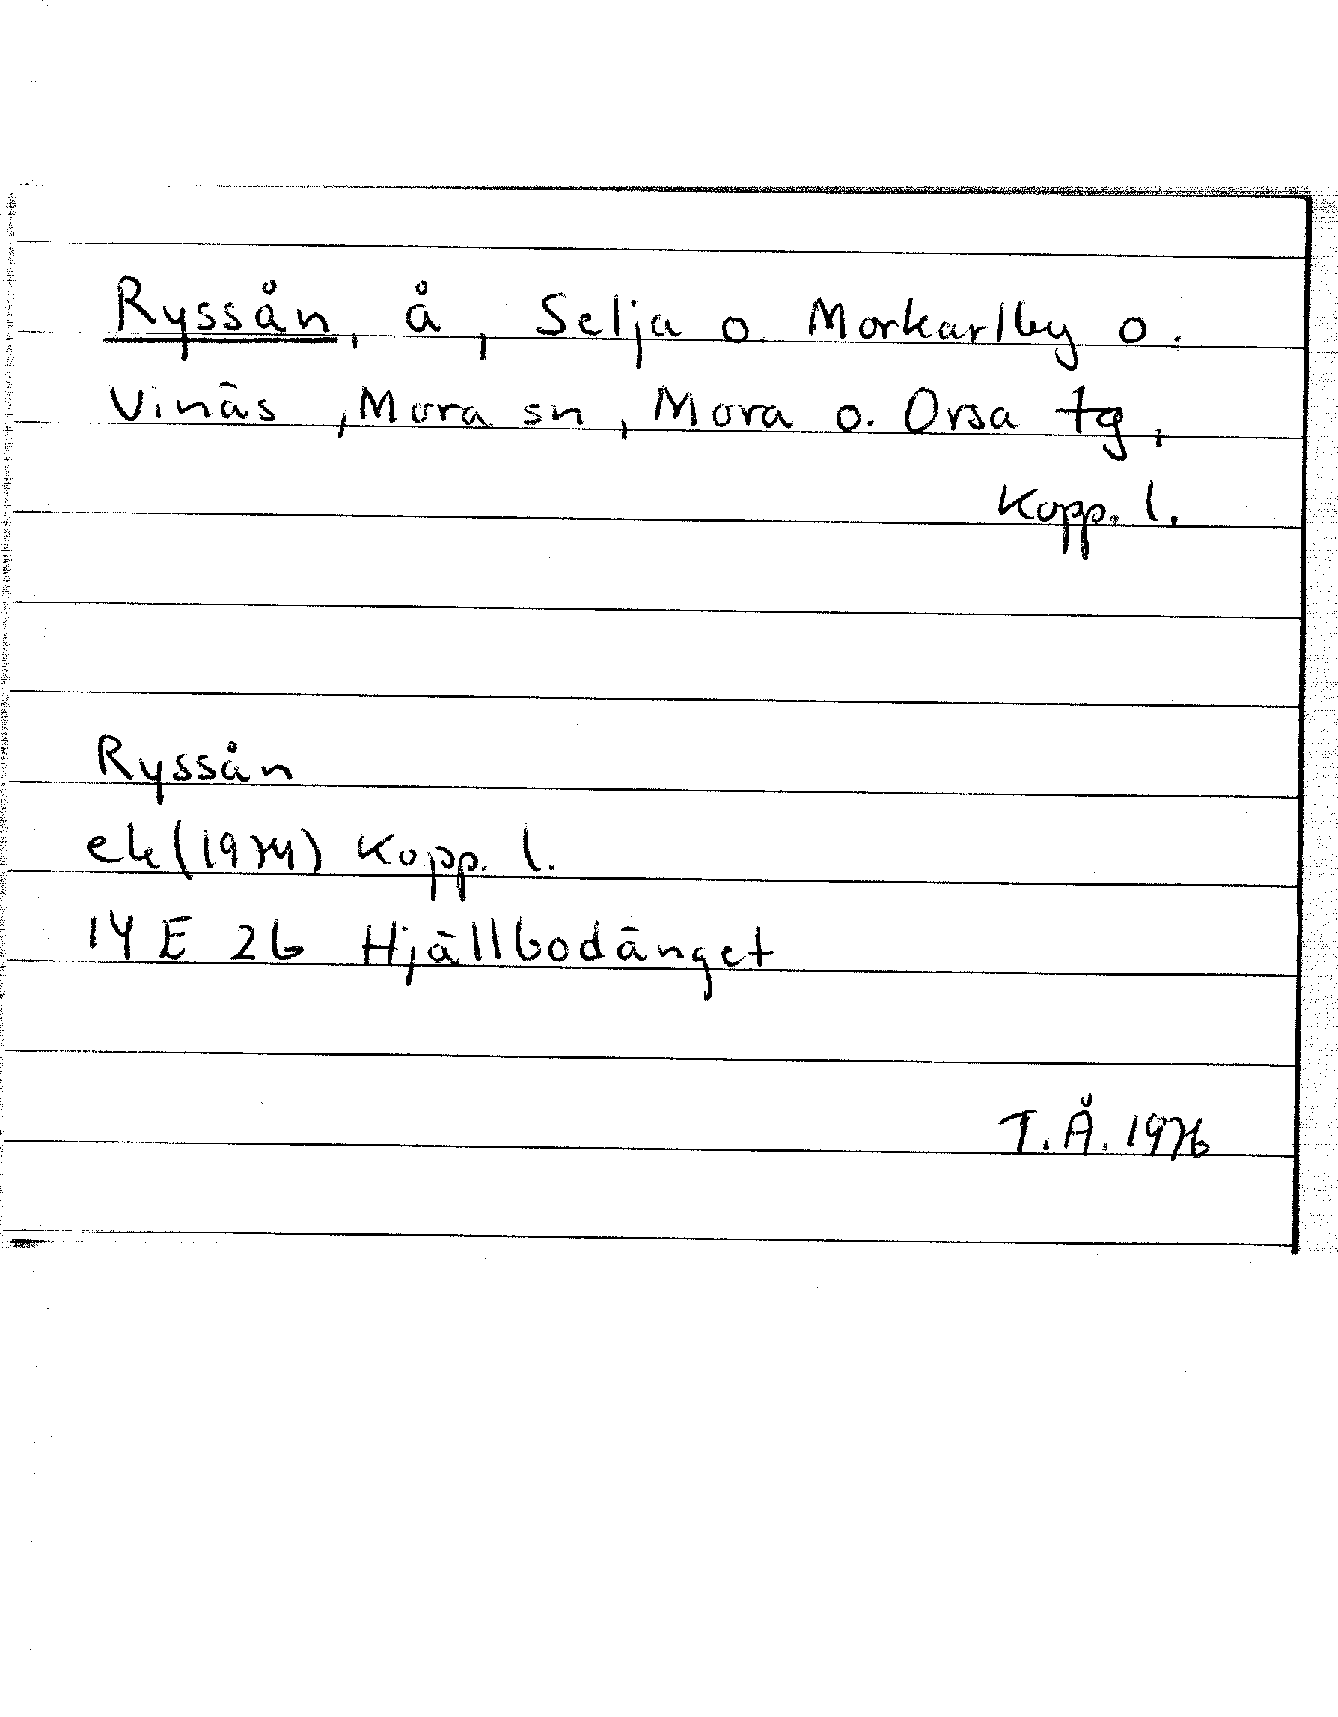 Ryssån, å, Selja o. Morkarlby o.
Vinäs, Mora sn, Mora o. Orsa tg,
Kopp. l.
Ryssån
ek (1974) Kopp. l.
14 E 2b Hjällbodänget
T. Å. 1976